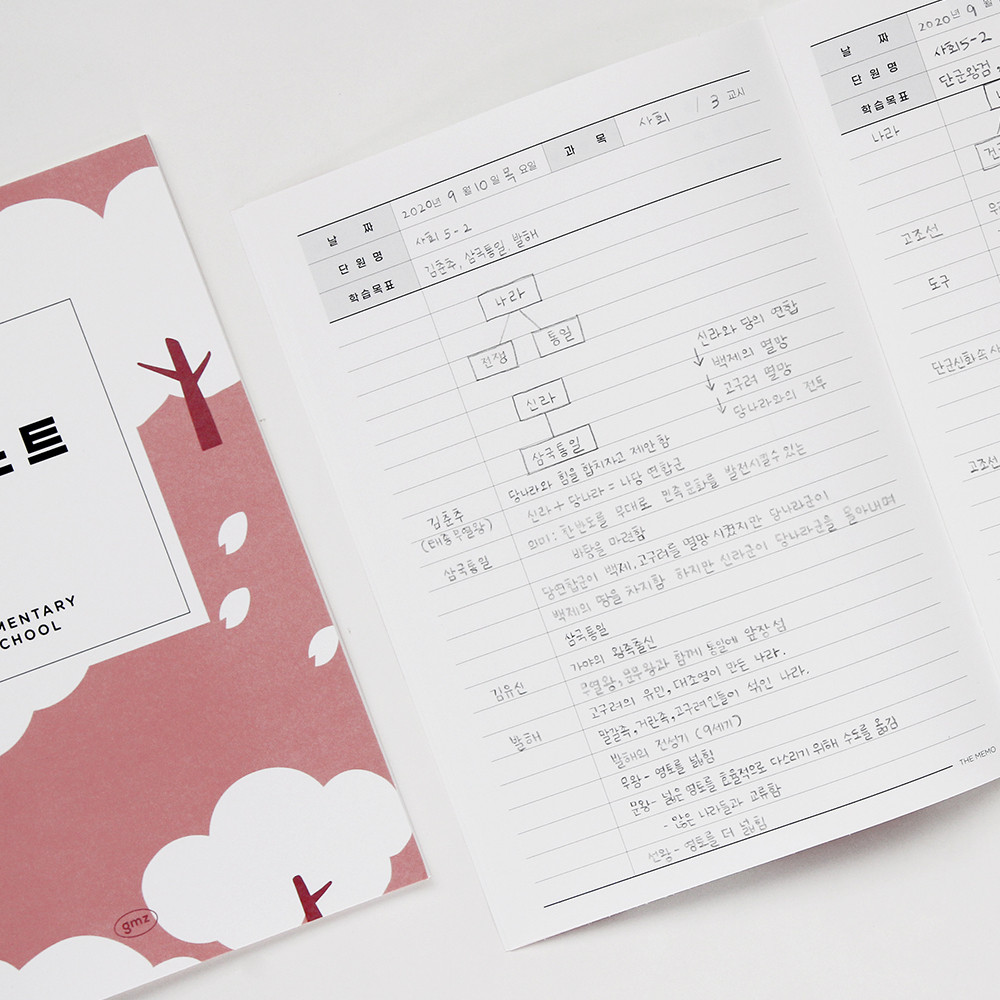 트
MENTARY
CHOOL
gmz
날 짜 2020년 9월 10일 목요일 과 목 사회 / 3 교시
단 원 명 사회 5-2
학습목표 김춘추, 삼국통일, 발해
나라
전쟁 통일
신라
삼국통일
신라와 당의 연합
↓ 백제의 멸망
↓ 고구려 멸망
↓ 당나라와의 전투
당나라와 힘을 합치자고 제안함
김춘추 신라 + 당나라 = 나당 연합군
(태종무열왕) 의미 : 한반도를 무대로 민족문화를 발전시킬수 있는
바탕을 마련함
삼국통일 당연합군이 백제.고구려를 멸망시켰지만 당나라군이
백제의 땅을 차지함 하지만 신라군이 당나라군을 몰아내며
삼국통일
가야의 왕족출신
김유신 무열왕, 문무왕과 함께 통일에 앞장섬
고구려의 유민, 대조영이 만든 나라.
발해 말갈족, 거란족, 고구려인들이 섞인 나라.
발해의 전성기 (9세기)
무왕 - 영토를 넓힘
문왕 - 넓은 영토를 효율적으로 다스리기 위해 수도를 옮김
- 많은 나라들과 교류함
선왕 - 영토를 더 넓힘
THE MEMO
날 짜 2020년 9
단 원 명 사회5-2
학습목표 단군왕검,
나라
고조선
도구
단군신화 속 사
고조선